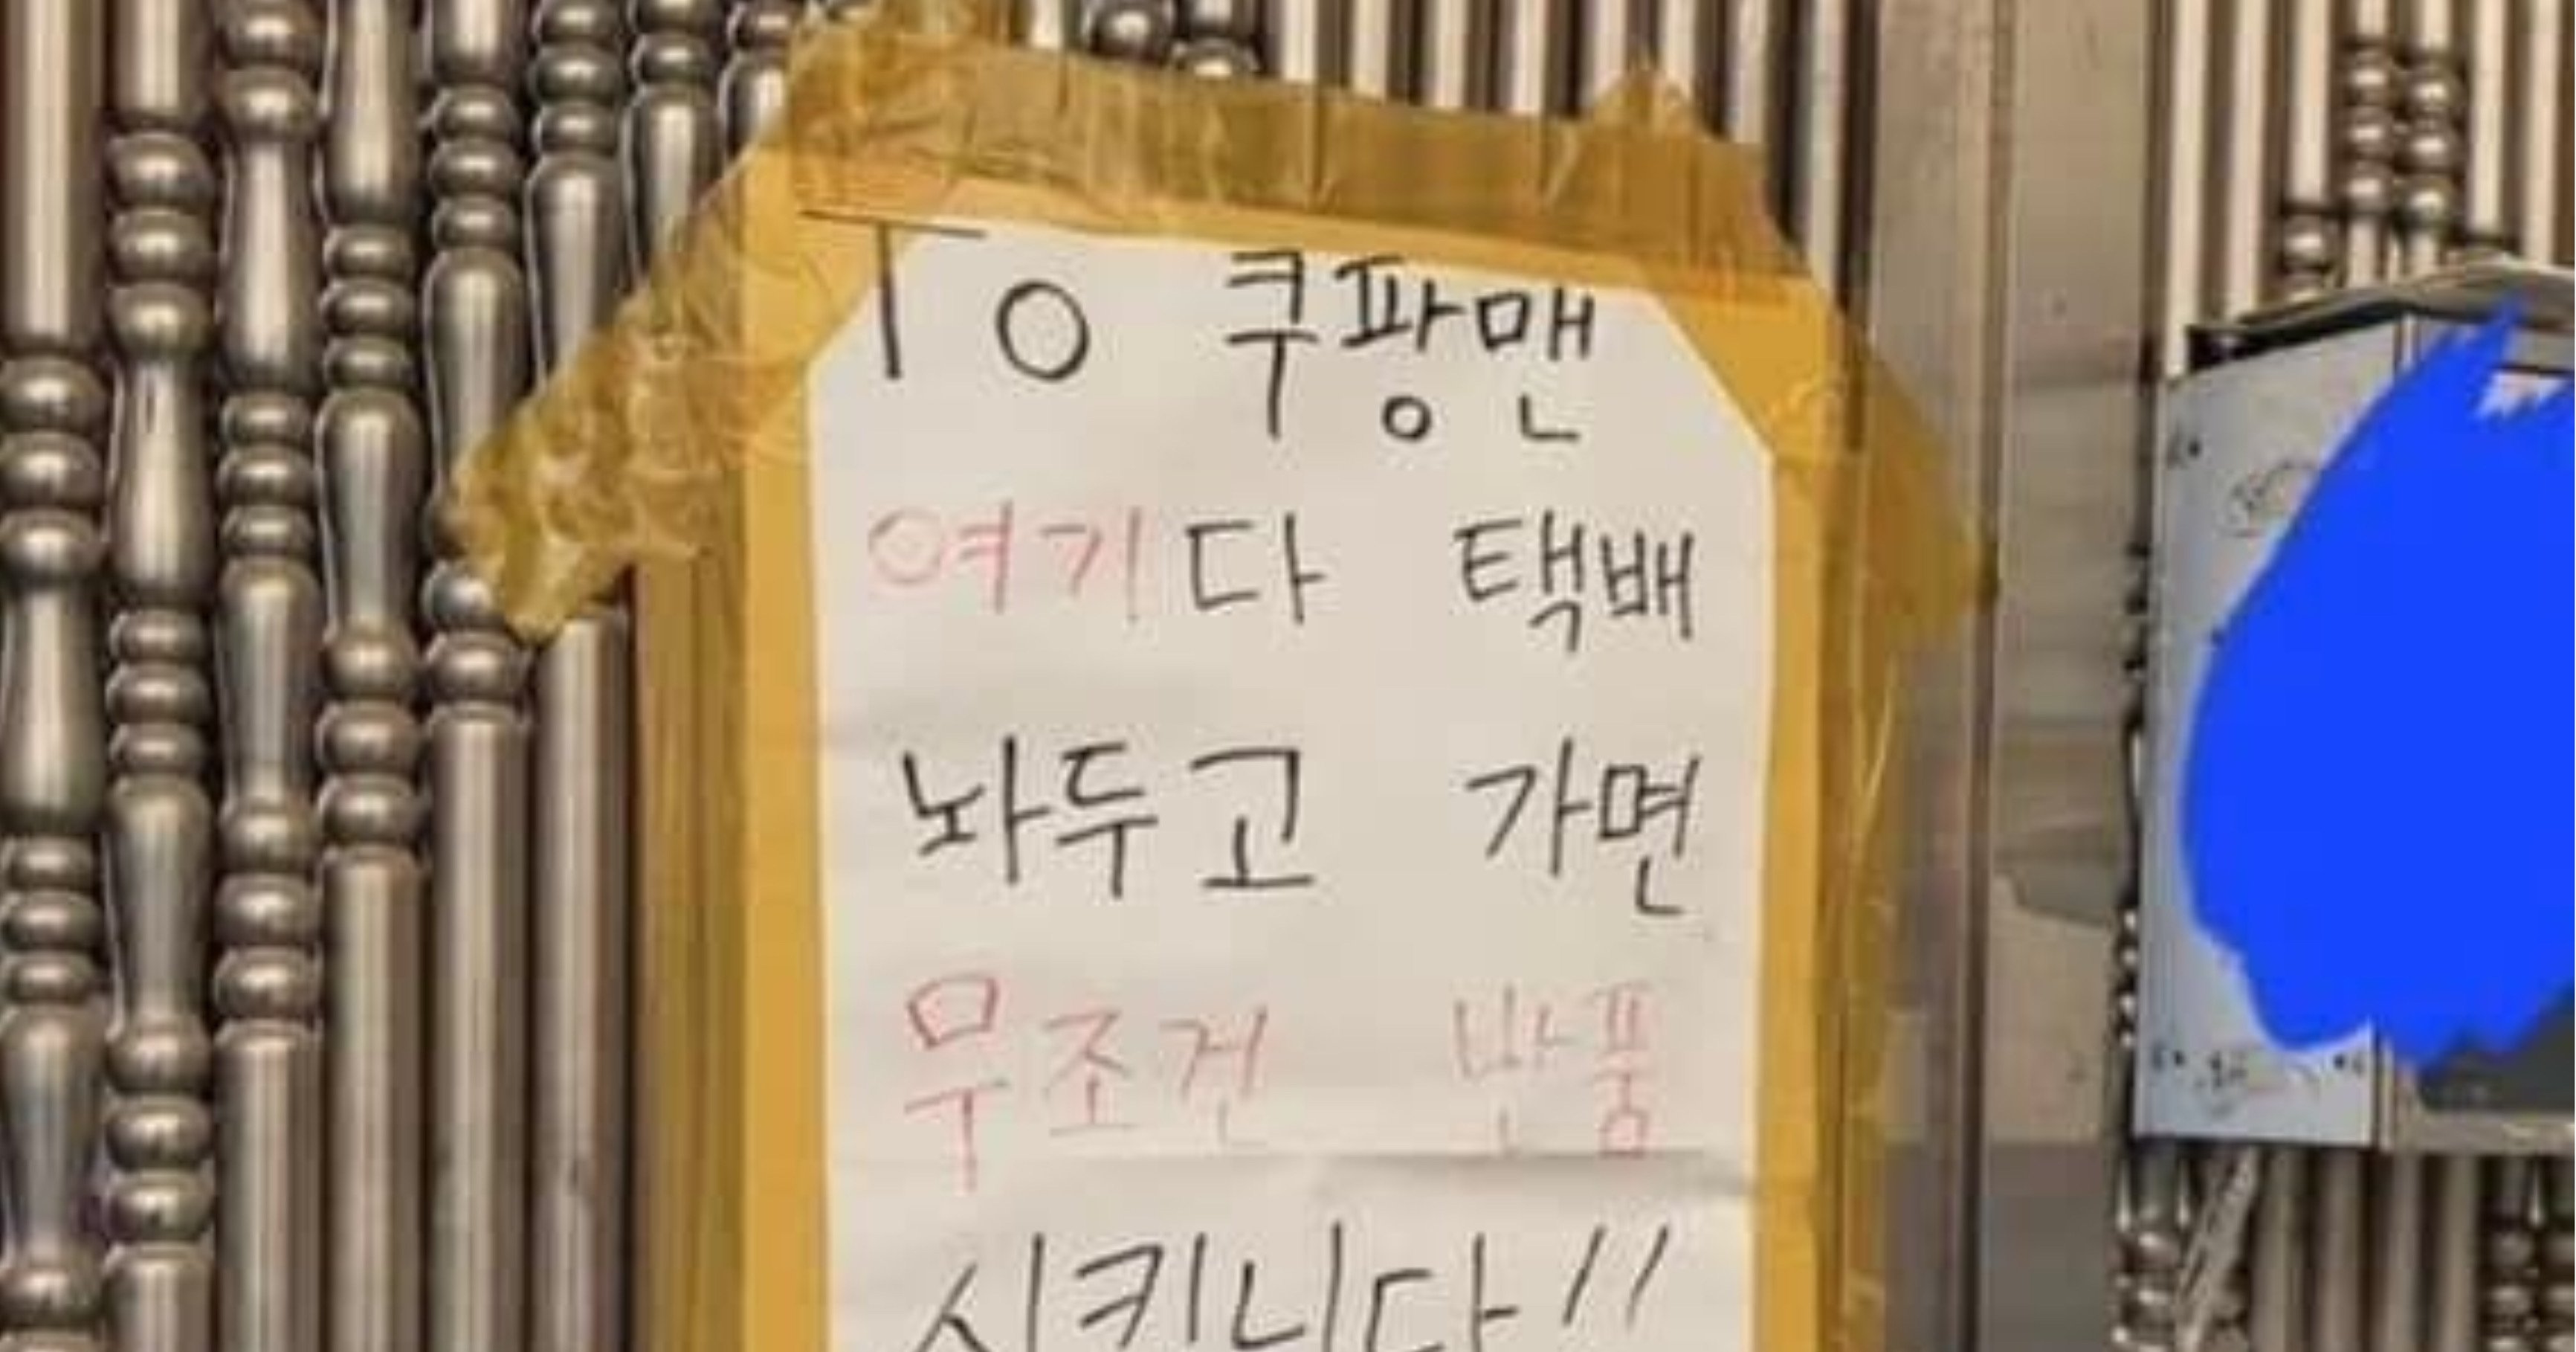 To 쿠팡맨
여기다 택배
놔두고 가면
무조건 반품
시키니다!!